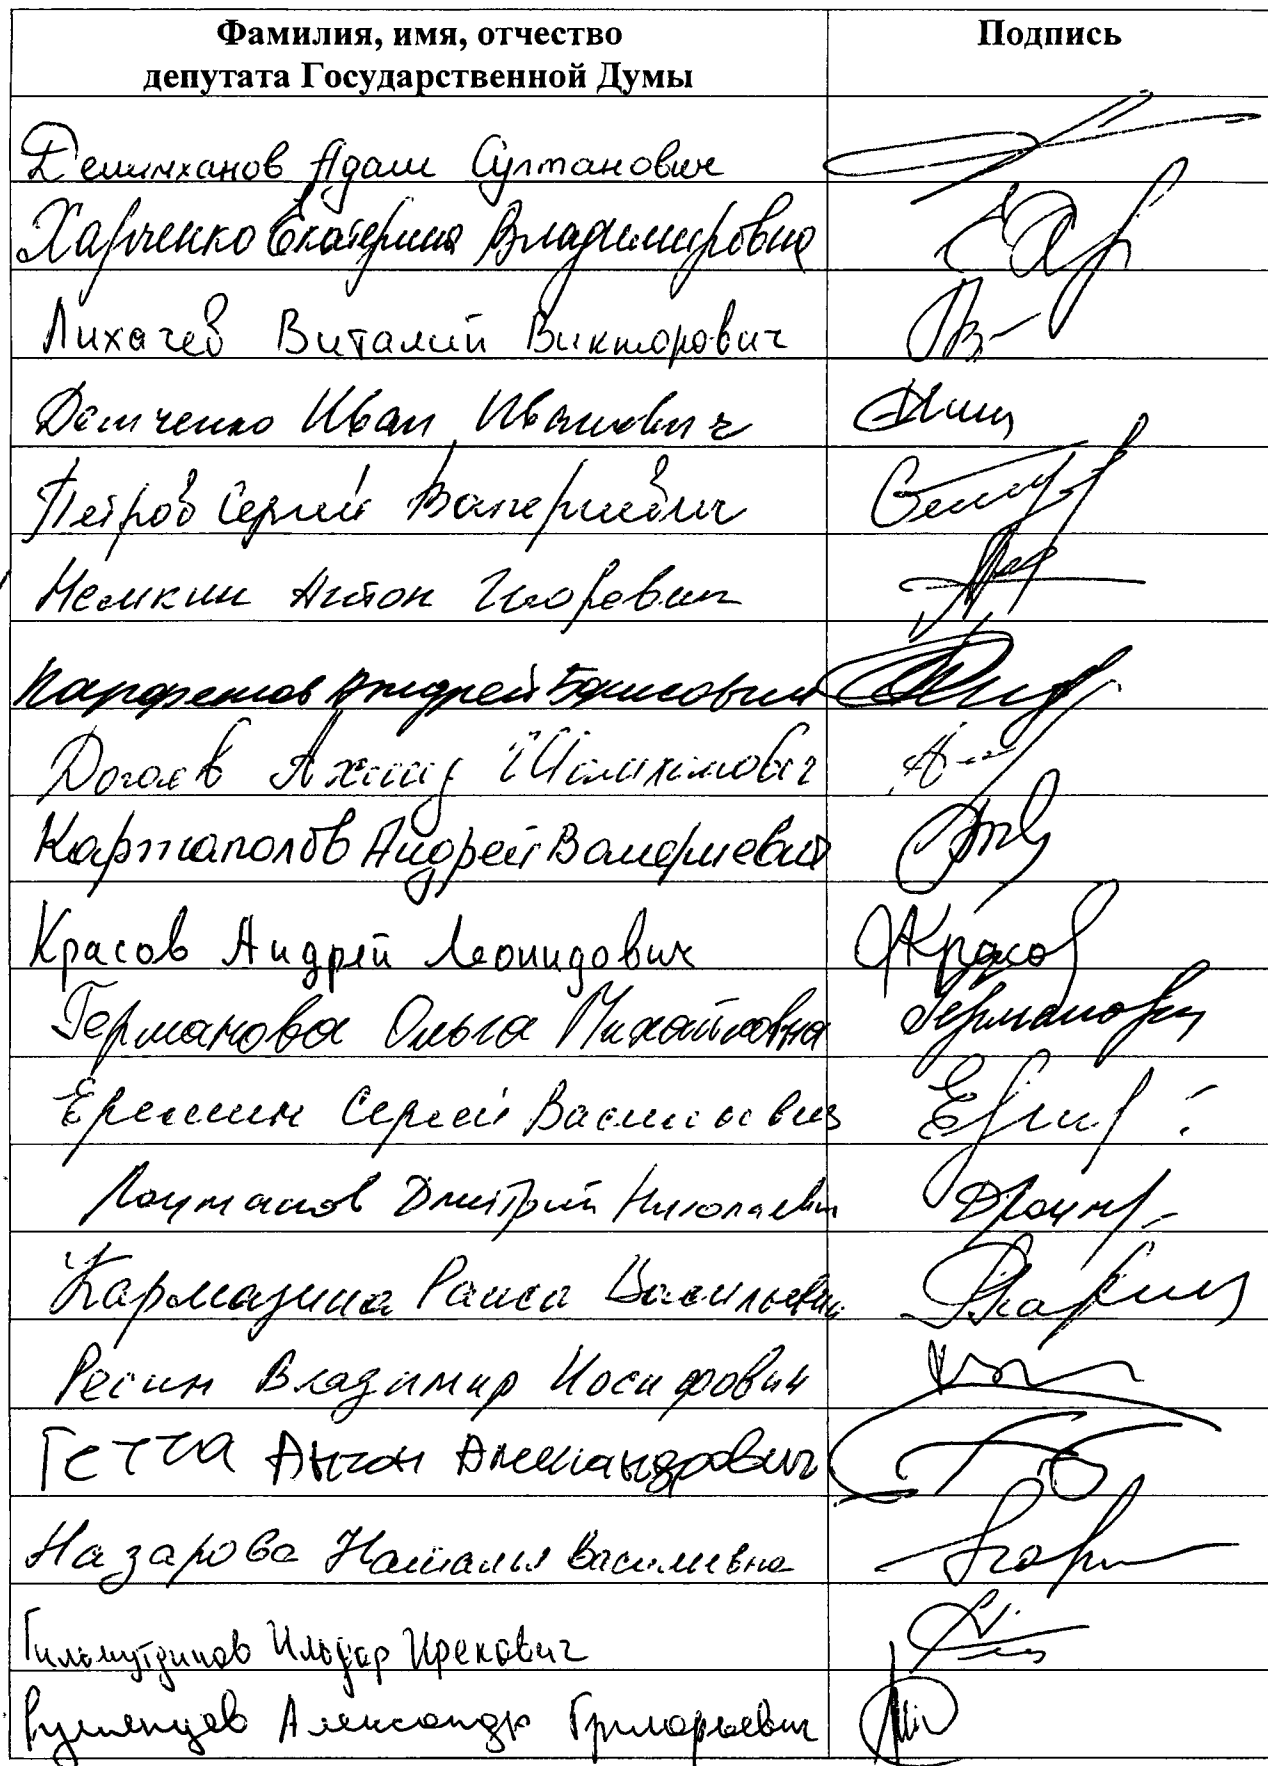 Фамилия, имя, отчество
депутата Государственной Думы
Подпись
Делимханов Адам Султанович
Харченко Екатерина Владимировна
Лихачев Виталий Викторович
Демченко Иван Иванович
Петров Сергей Валериевич
Немкин Антон Игоревич
Парфенов Андрей Борисович
Догаев Ахмед Шамханович
Картаполов Андрей Валериевич
Красов Андрей Леонидович Красов
Германова Ольга Михайловна Германова
Еремин Сергей Васильевич
Лоцманов Дмитрий Николаевич
Кармазина Раиса Васильевна
Ресин Владимир Иосифович
Гетта Антон Александрович
Назарова Наталья Васильевна
Гильмутдинов Ильдар Ирекович
Румянцев Александр Григорьевич